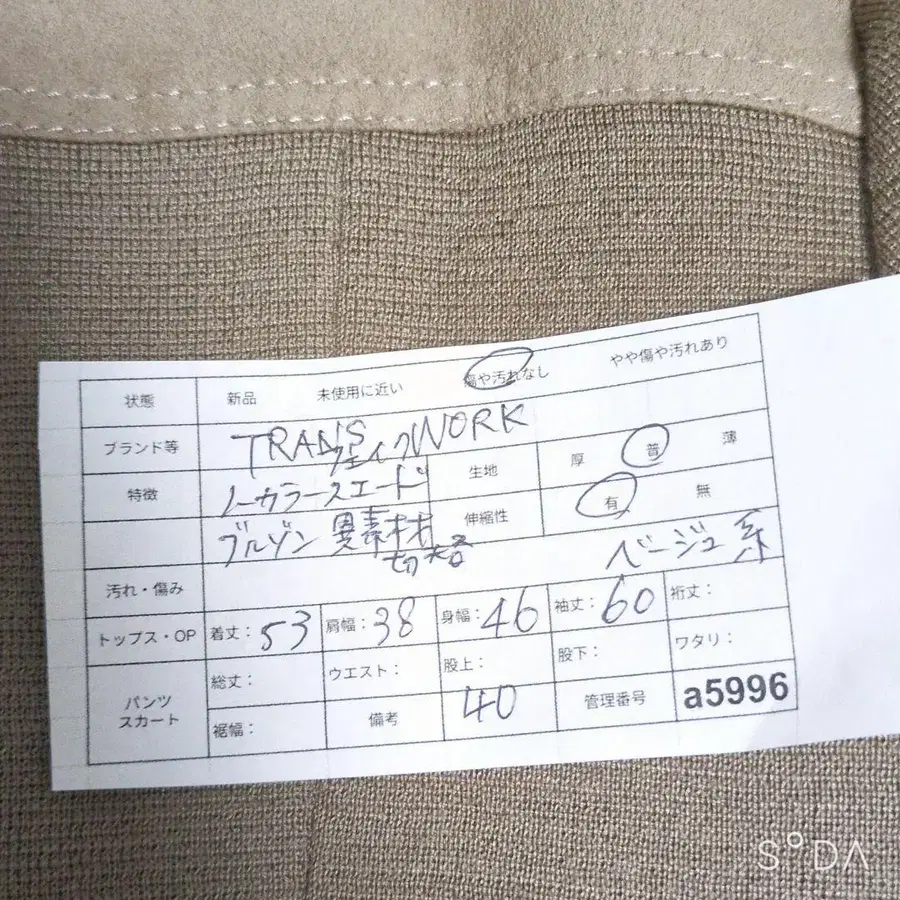 状態 新品 未使用に近い 傷や汚れなし やや傷や汚れあり
ブランド等 TRANS WORK
特徴 フェイク
ノーカラースエード 生地 厚 普 薄
ブルゾン 異素材 伸縮性 有 無
切替 ベージュ系
汚れ・傷み
トップス・OP 着丈: 53 肩幅: 38 身幅: 46 袖丈: 60 裄丈:
パンツ スカート 総丈: ウエスト: 股上: 股下: ワタリ:
裾幅: 備考 40 管理番号 a5996
SODA